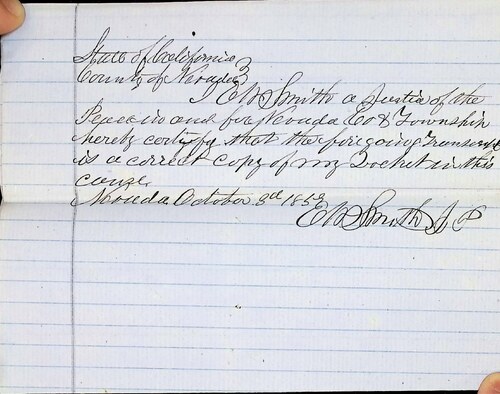 State of California }
County of Nevada }
I E W Smith a Justice of the
Peace in and for Nevada Co & Township
hereby certify that the foregoing Transcript
is a correct copy of my Docket in this
cause.
Nevada October 3d 1859
E W Smith J P